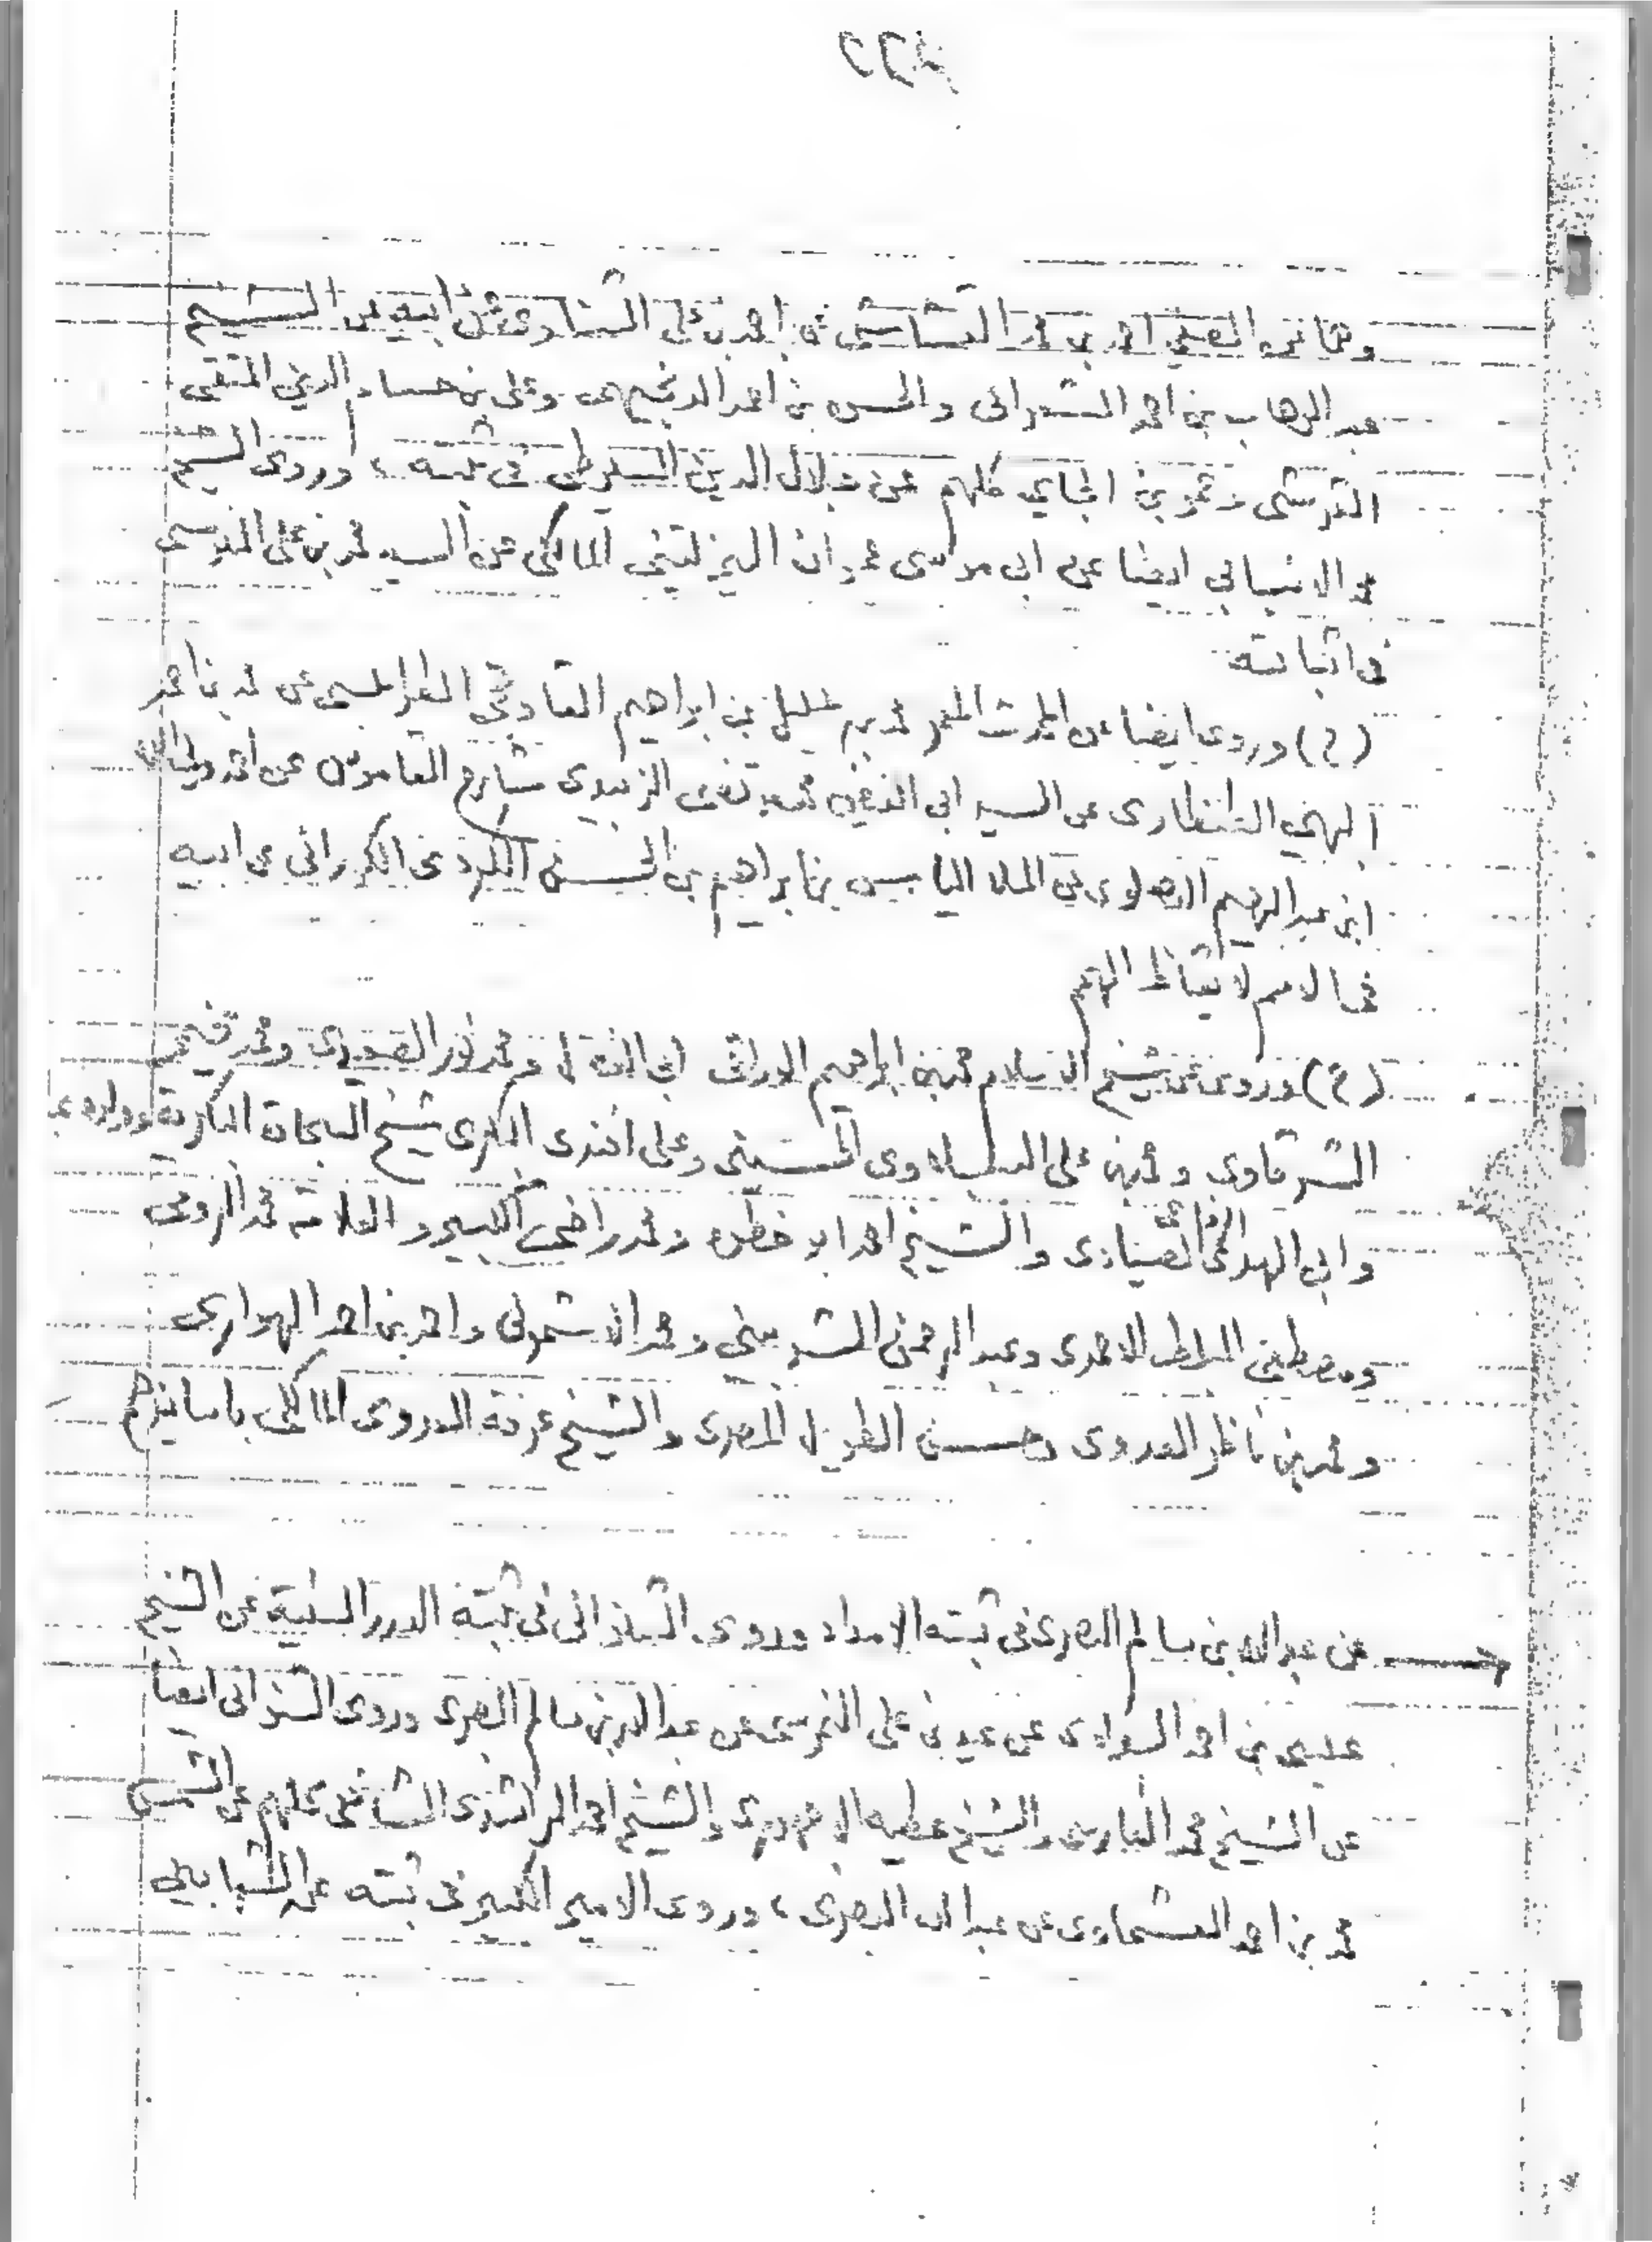 وهما عن الصفي احمد بن محمد القشاشي عن احمد بن علي الشناوي عن ابيه عن الشيخ
عبد الوهاب بن احمد الشعراني والحسن بن احمد الدنجيهي وعلي بن حسام الدين المتقي
القرشي وعمر بن الجاي كلهم عن جلال الدين السيوطي في ثبته ، وروى الشيخ
محمد الانبابي ايضا عن ابي موسى عمران اليزلتيني المالكي عن السيد محمد بن علي السنوسي
في اثباته
(ح) وروى ايضا عن المحدث المعمر محمد بن خليل بن ابراهيم القاوقجي الطرابلسي عن محمد بن احمد
البهي الطنطاوي عن السيد ابي الفيض محمد مرتضى الزبيدي شارح القاموس عن احمد ولي الله
ابن عبد الرحيم الدهلوي عن الملا الياس بن ابراهيم بن الحسن الكردي الكوراني عن ابيه
في الامم لايقاظ الهمم
(ح) وروى عن شيخ الاسلام محمد بن ابراهيم الوراقي ابي الفضل و
الشرقاوي و علي الببلاوي الحسيني وعلي افندي البكري شيخ السجادة البكرية
وابي الهدى الرفاعي الصيادي والشيخ احمد ابو خطوه ومحمد راضي الكبير والعلامة محمد الروبي
ومصطفى المبلط الاحمدي وعبد الرحمن الشربيني ومحمد الاشموني واحمد بن احمد الهواري
ومحمد بن ناظر العدوي وحسن الطويل المصري والشيخ عرفة العدوي المالكي باسانيدهم
عن عبد الله بن سالم البصري في ثبته الامداد وروى الشنواني في ثبته الدرر السنية عن الشيخ
عيسى بن احمد البراوي عن عيد بن علي النمرسي عن عبد الله بن سالم البصري وروى الشنواني ايضا
عن الشيخ محمد الفارسي والشيخ عطيه الاجهوري والشيخ احمد الراشدي الشافعي كلهم عن الشيخ
محمد بن احمد العشماوي عن عبد الله البصري ، وروى الامير الكبير في ثبته عن الشهاب